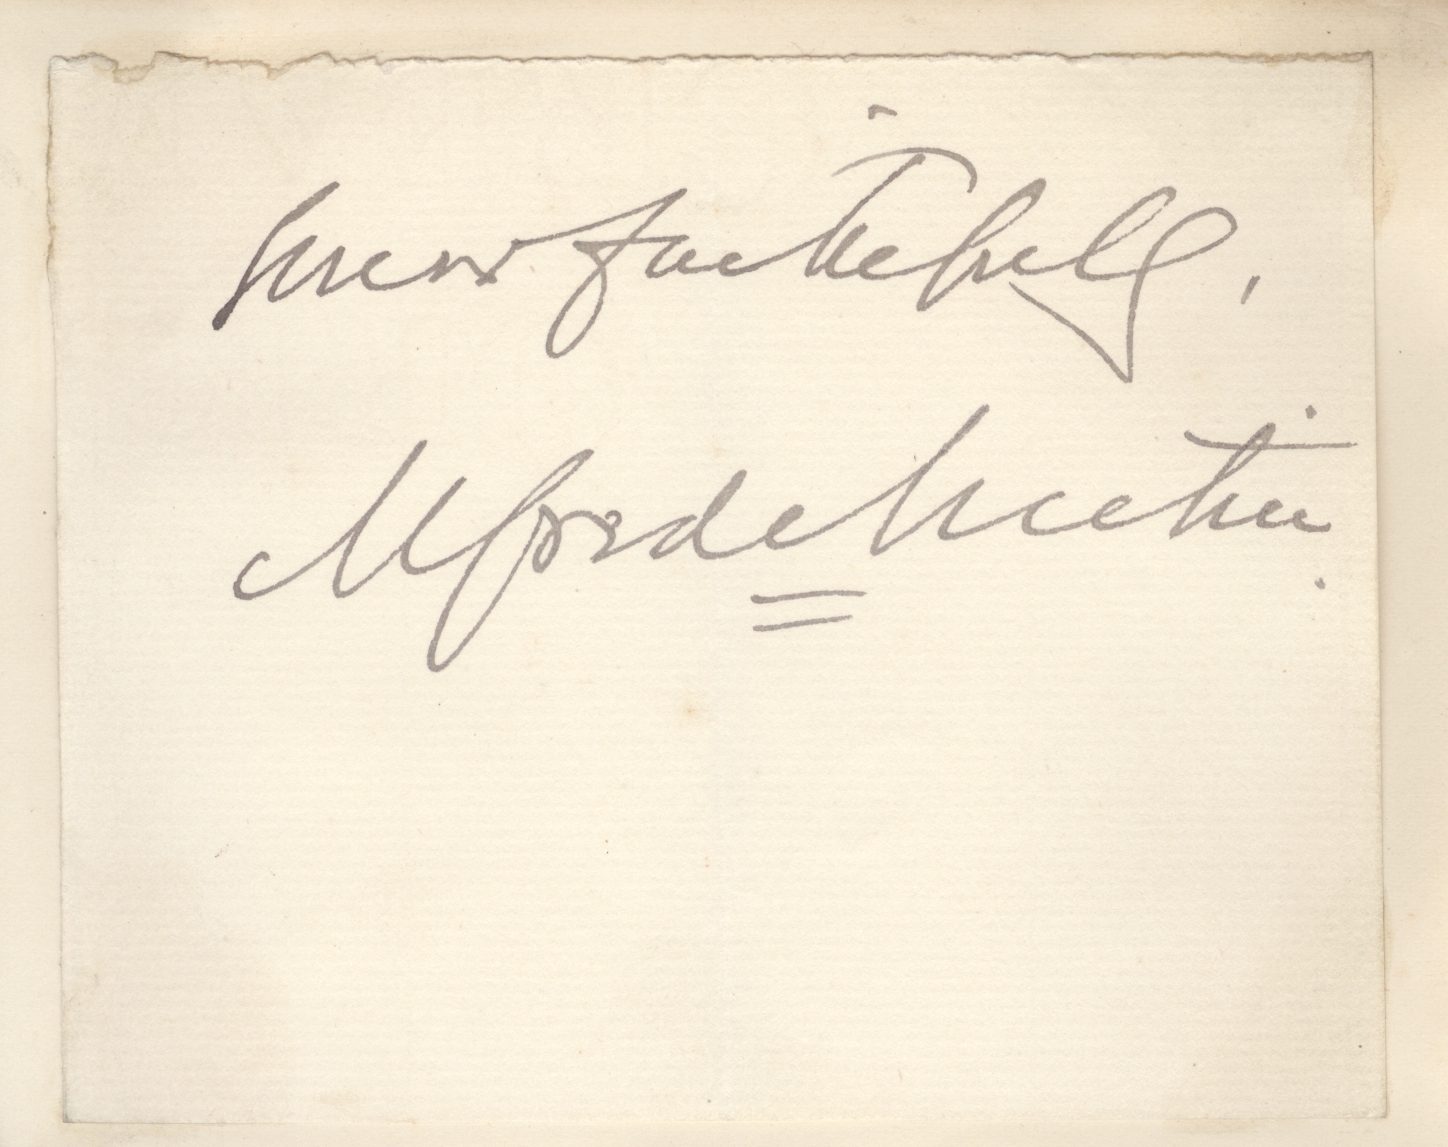 yours faithfully,
Alfred Martin.